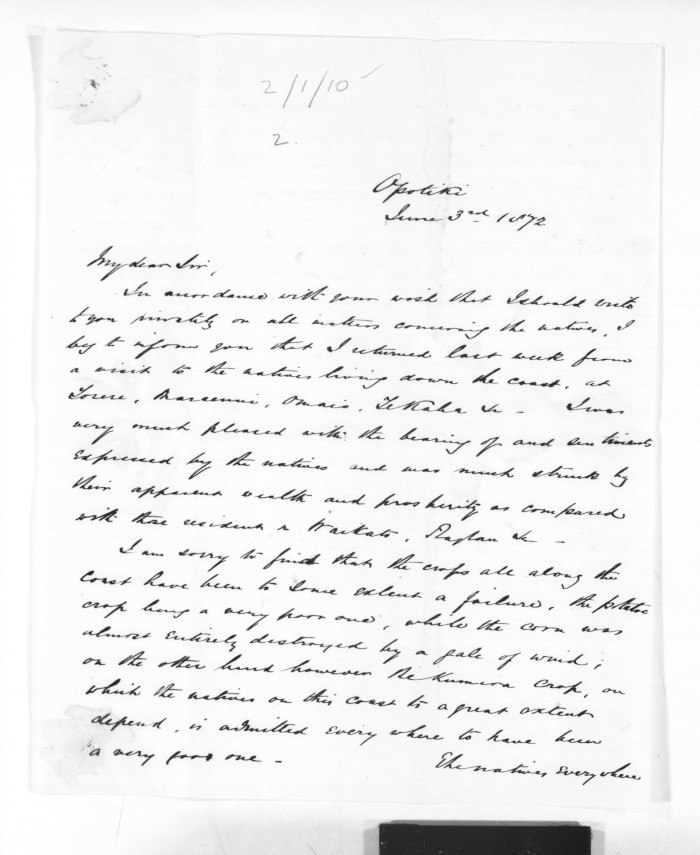 2/1/10
2.
Opotiki
June 3rd 1872
My dear Sir,
In accordance with your wish that I should write
to you privately on all matters concerning the natives, I
beg to inform you that I returned last week from
a visit to the natives living down the coast, at
Torere, Maraenui, Omaio, Te Kaha &c - I was
very much pleased with the bearing of and sentiments
expressed by the natives and was much struck by
their apparent wealth and prosperity as compared
with those resident in Waikato, Raglan &c -
I am sorry to find that the crops all along the
coast have been to some extent a failure, the potatoe
crop being a very poor one, while the corn was
almost entirely destroyed by a gale of wind;
on the other hand however the Kumera crop, on
which the natives on this coast to a great extent
depend, is admitted every where to have been
a very good one -
The natives everywhere